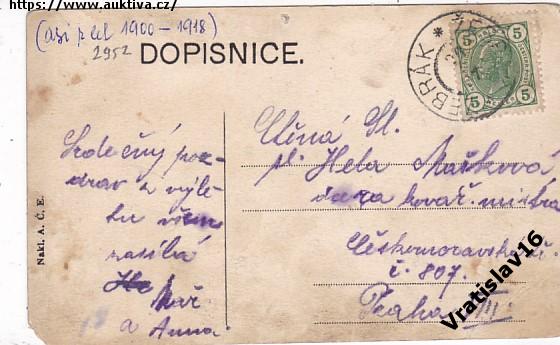 https://www.auktiva.cz/
(asi z let 1900-1918)
2952
DOPISNICE.
ŽEBRÁK *
5 5
5 5
Srdečný poz-
drav z výle-
tu všem
zasílá
a Anna
Ctěná Sl.
sl. Hela Mašková
dcera kovář. mistra
Českomoravská
č. 807.
Praha III.
Nakl. A. Č. E.
Vratislav16